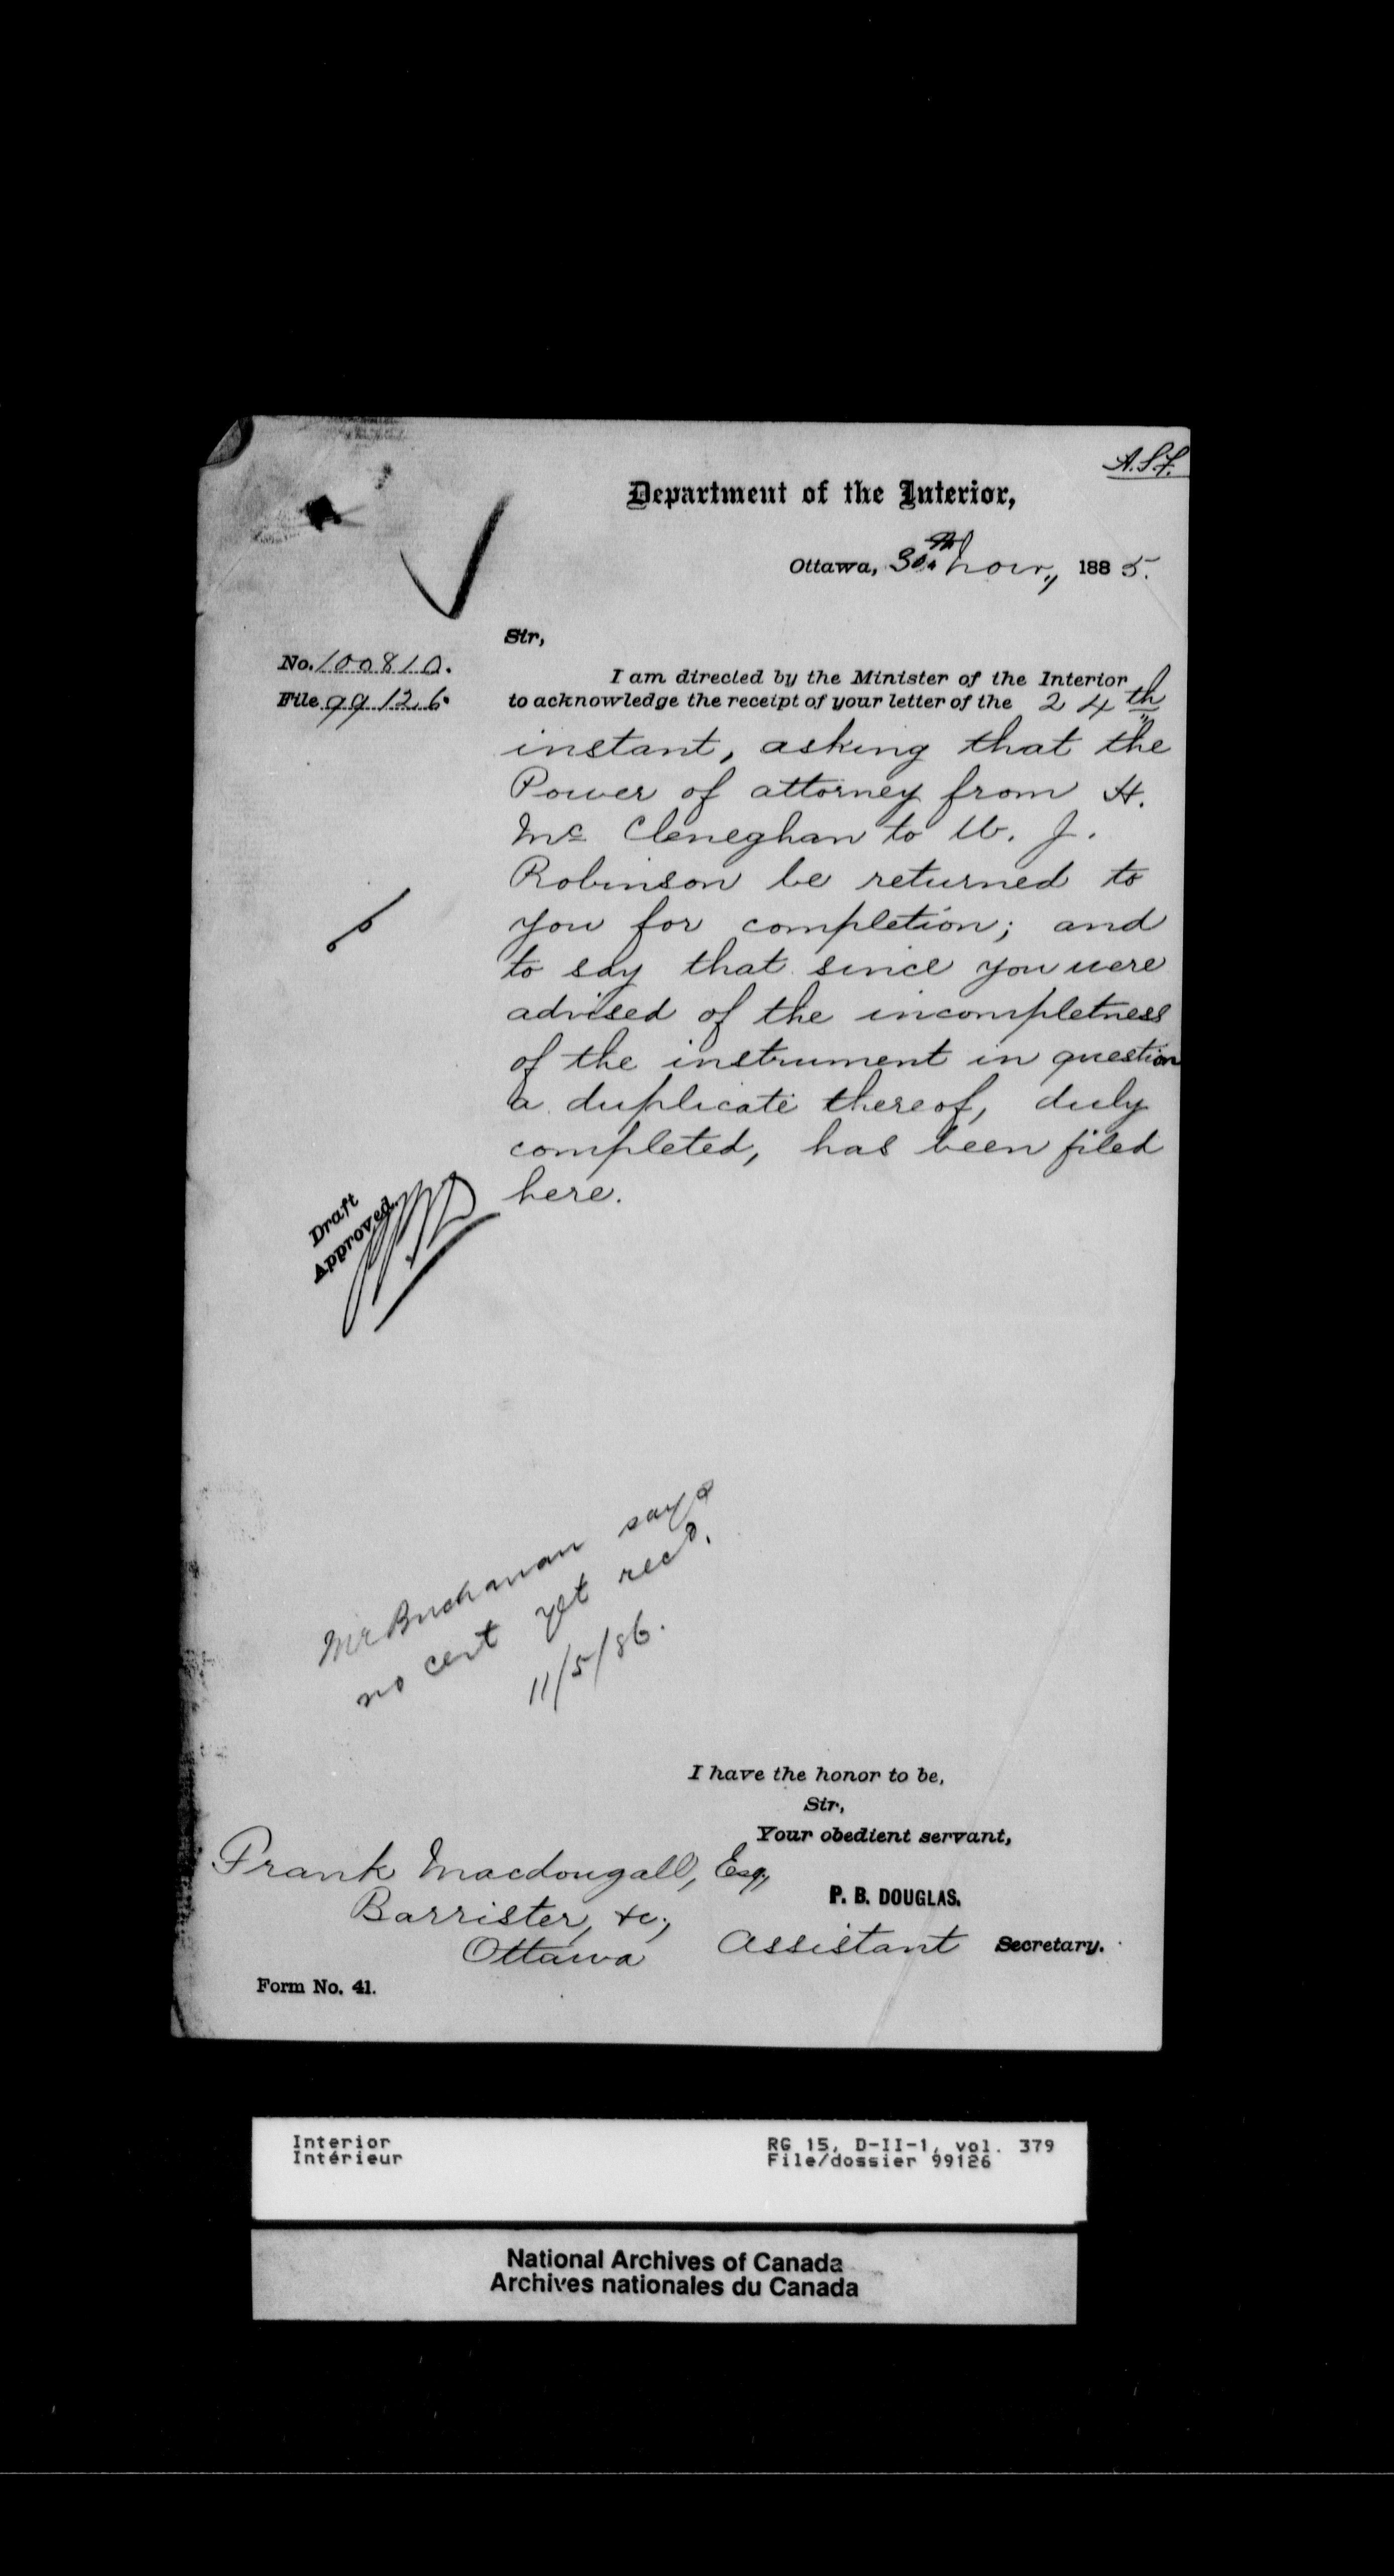 A.S.F.
Department of the Interior,
Ottawa, 30th Nov., 1885.
Sir,
No. 100810.
File 99126.
I am directed by the Minister of the Interior
to acknowledge the receipt of your letter of the 24th
instant, asking that the
Power of attorney from H.
Mc Cleneghan to W. J.
Robinson be returned to
you for completion; and
to say that since you were
advised of the incompletness
of the instrument in question
a duplicate thereof, duly
completed, has been filed
here.
Draft
Approved.
Mr Buchanan says
no cert yet recd.
11/5/86.
I have the honor to be,
Sir,
Your obedient servant,
Frank Macdougall, Esq,
P. B. DOUGLAS.
Barrister, &c.,
Ottawa
Assistant Secretary.
Form No. 41.
Interior
Intérieur
RG 15, D-II-1, vol. 379
File/dossier 99126
National Archives of Canada
Archives nationales du Canada